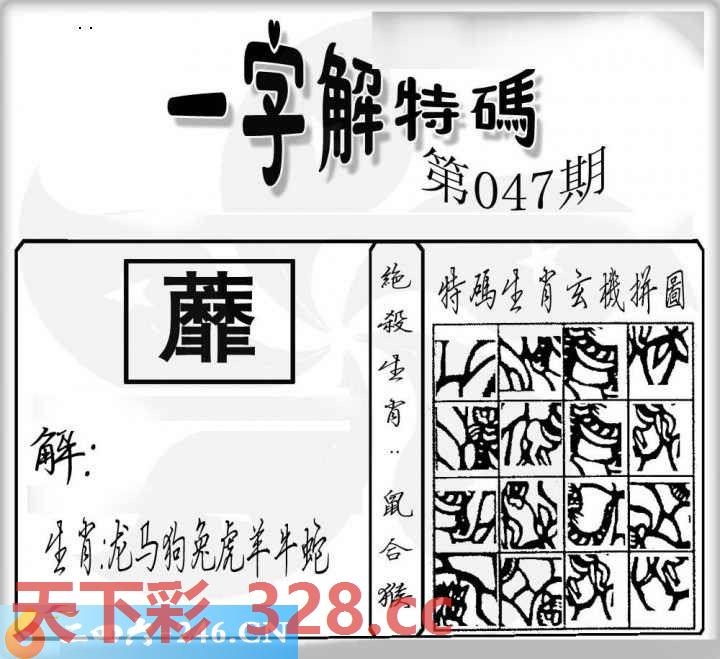 一字解特碼
第047期
蘼
解:
生肖:龙马狗兔虎羊牛蛇
絶殺生肖:鼠合猴
特碼生肖玄機拼圖
天下彩 328.cc
二四六 246.CN